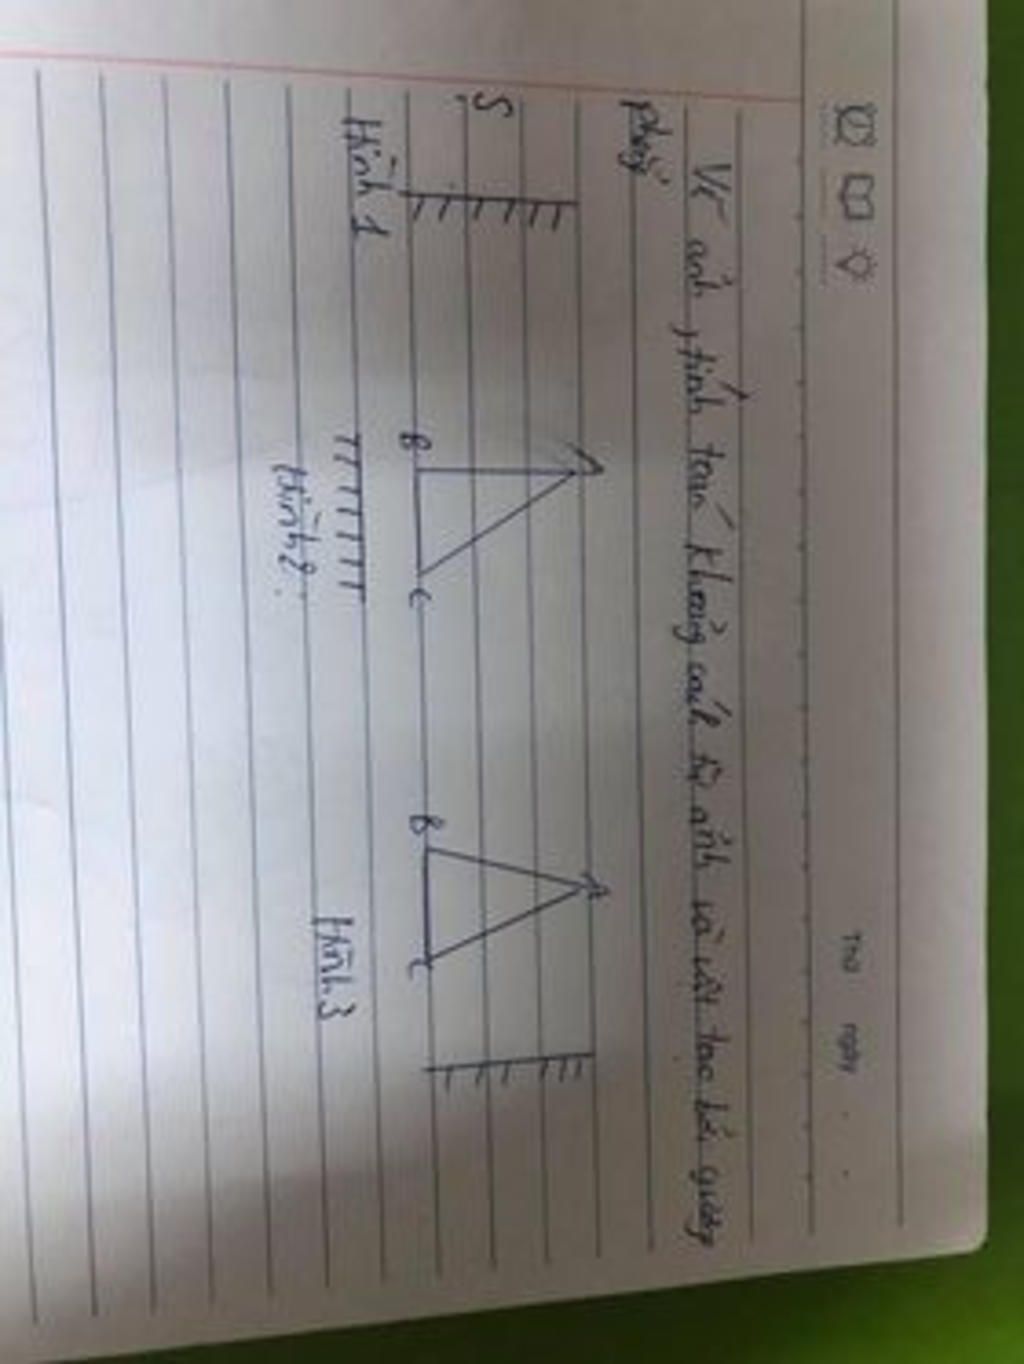 Thứ ngày
Vẽ ảnh, tính toán khoảng cách từ ảnh và vật tạo bởi gương
phẳng
S
A
A
B
C
B
C
Hình 1
Hình 2
Hình 3